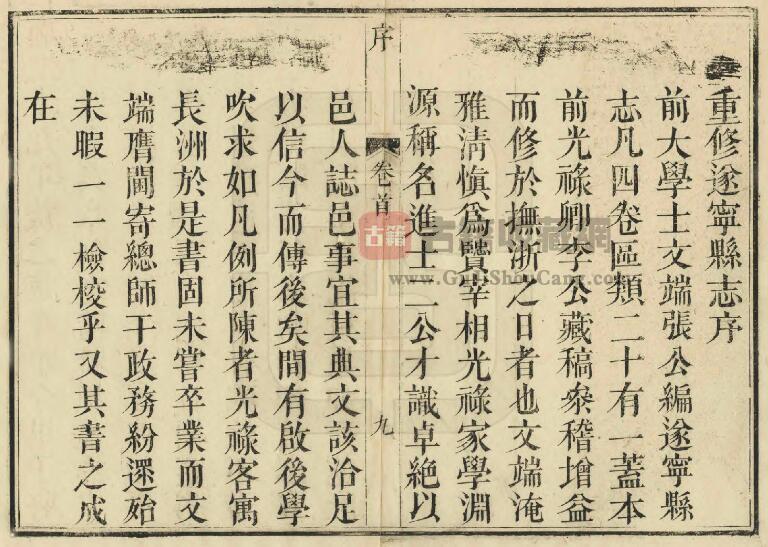 重修遂寧縣志序
前大學士文端張公編遂寧縣
志凡四卷區類二十有一蓋本
前光祿卿李公藏稿叅稽增益
而修於撫浙之日者也文端淹
雅清慎爲賢宰相光祿家學淵
源稱名進士二公才識卓絕以
序
卷首
九
邑人誌邑事宜其典文該洽足
以信今而傳後矣間有啟後學
吹求如凡例所陳者光祿客寓
長洲於是書固未嘗卒業而文
端膺閫寄總師干政務紛遝殆
未暇一一檢校乎又其書之成
在
古籍